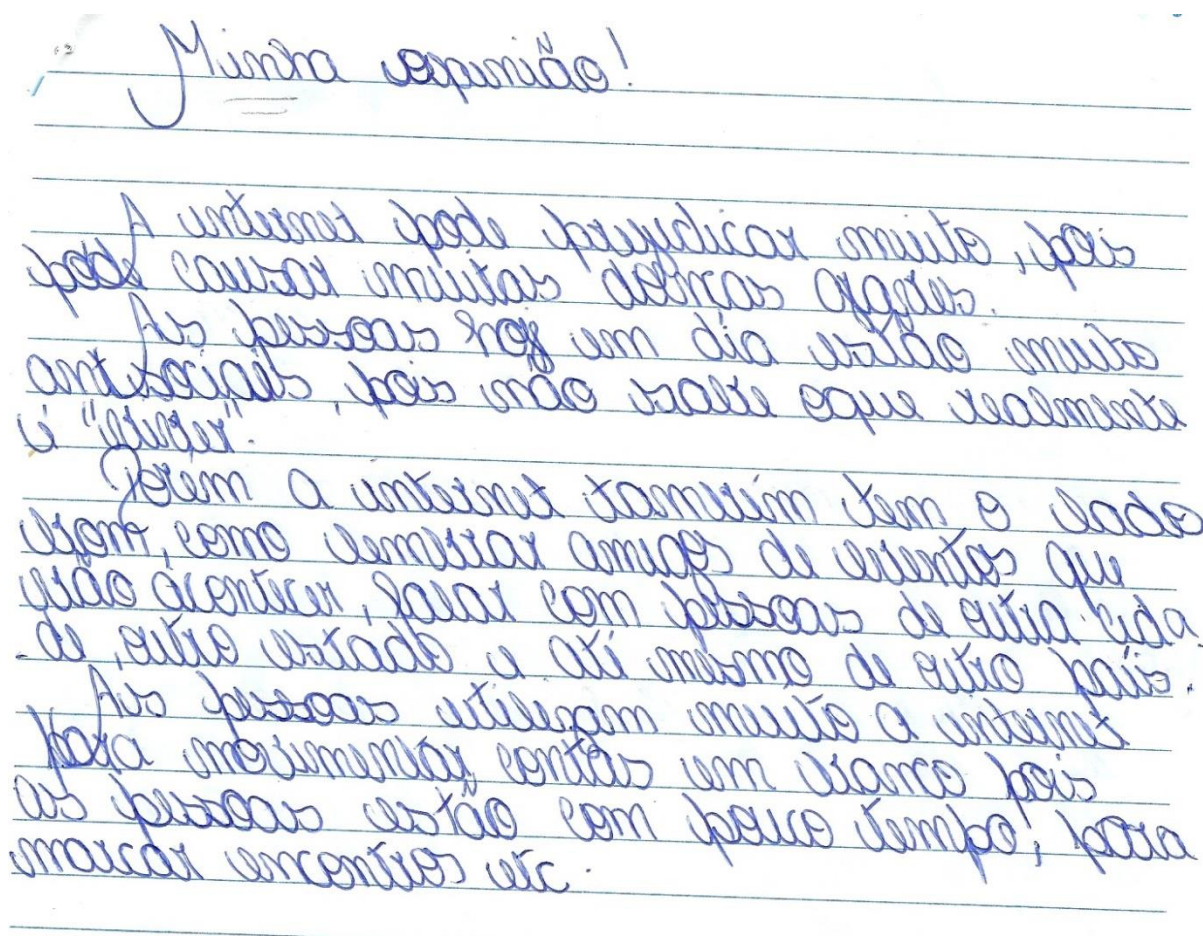 Minha opinião!
A internet pode prejudicar muito, pois
pode causar muitas doenças graves.
As pessoas hoje em dia estão muito
antisociais, pois não sabe oque realmente
é "viver".
Porém a internet também tem o lado
bom, como lembrar amigos de eventos que
vão acontecer, falar com pessoas de outra cida-
de, outro estado e até mesmo de outro país.
As pessoas utilizam muito a internet
para movimentar contas em banco pois
as pessoas estão com pouco tempo, para
marcar encontros etc.